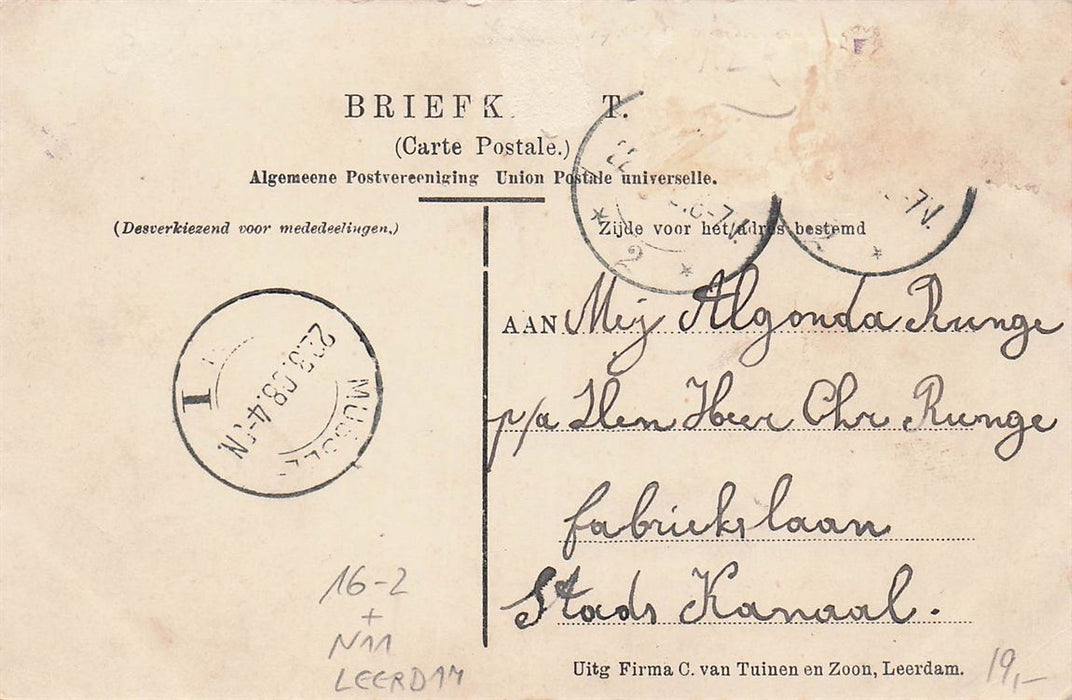 BRIEFK T.
(Carte Postale.)
Algemeene Postvereeniging Union Postale universelle.
(Desverkiezend voor mededeelingen.)
Zijde voor het adres bestemd
6-7N.
2
-7N.
2
AAN Mej Algonda Runge
p/a Den Heer Chr Runge
fabriekslaan
Stads Kanaal.
MUSSEL
22.3.08.4-5N.
I
16-2
+
N11
LEERDAM
Uitg Firma C. van Tuinen en Zoon, Leerdam.
19,-